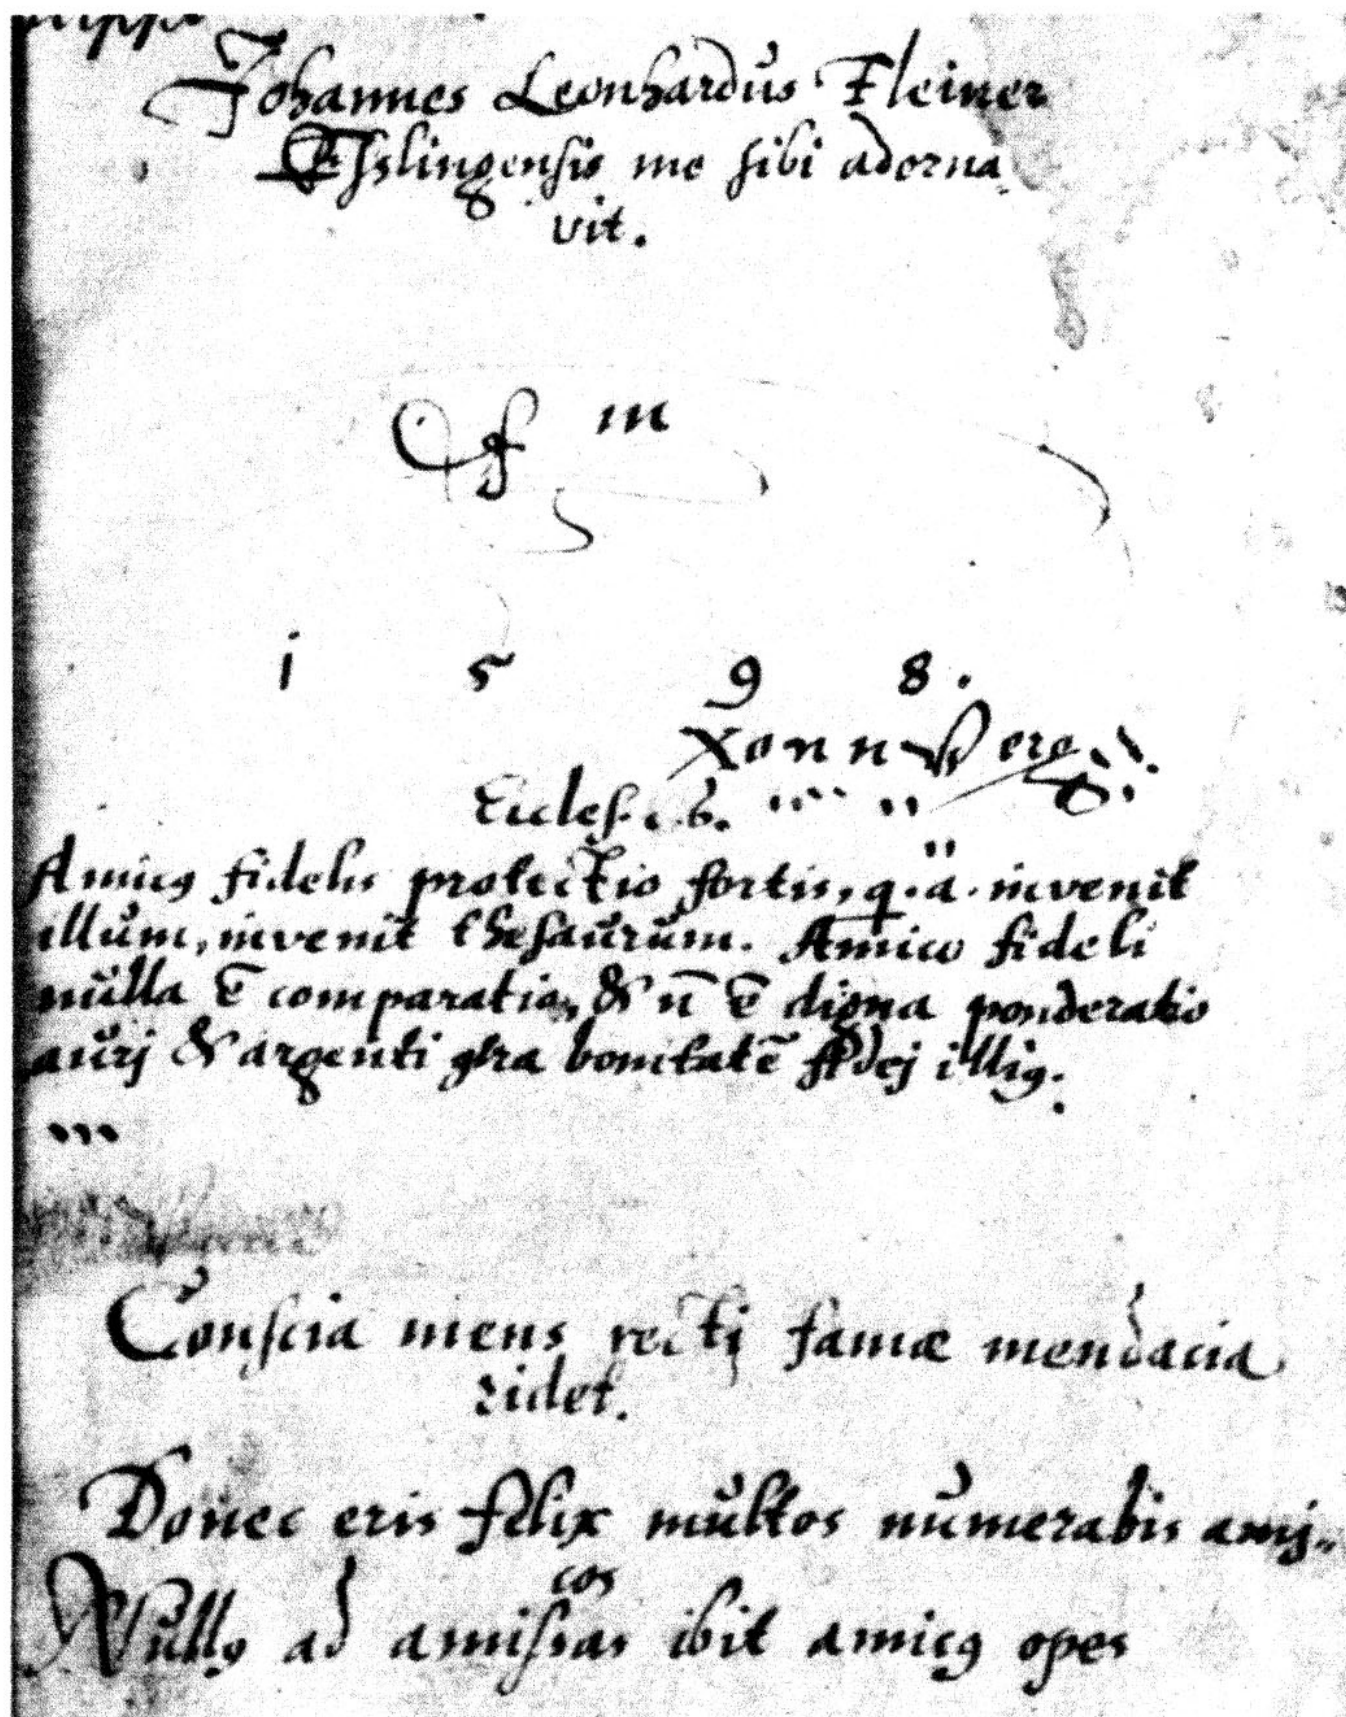 Johannes Leonhardus Fleiner
Esslingensis me sibi adorna
vit.
m
1 5 9 8.
Xonnsberg
Eccles. c. 6.
Amicꝰ fidelis protectio fortis, q. a. invenit
illum, invenit thesaurum. Amico fideli
nulla ē comparatio, & n̄ ē digna ponderatio
aurj & argenti ꝯtra bonitatē fidej illiꝰ.
Conscia mens rectj famæ mendacia
ridet.
Donec eris felix multos numerabis amj-
cos
Nullꝰ ad amissas ibit amicꝰ opes